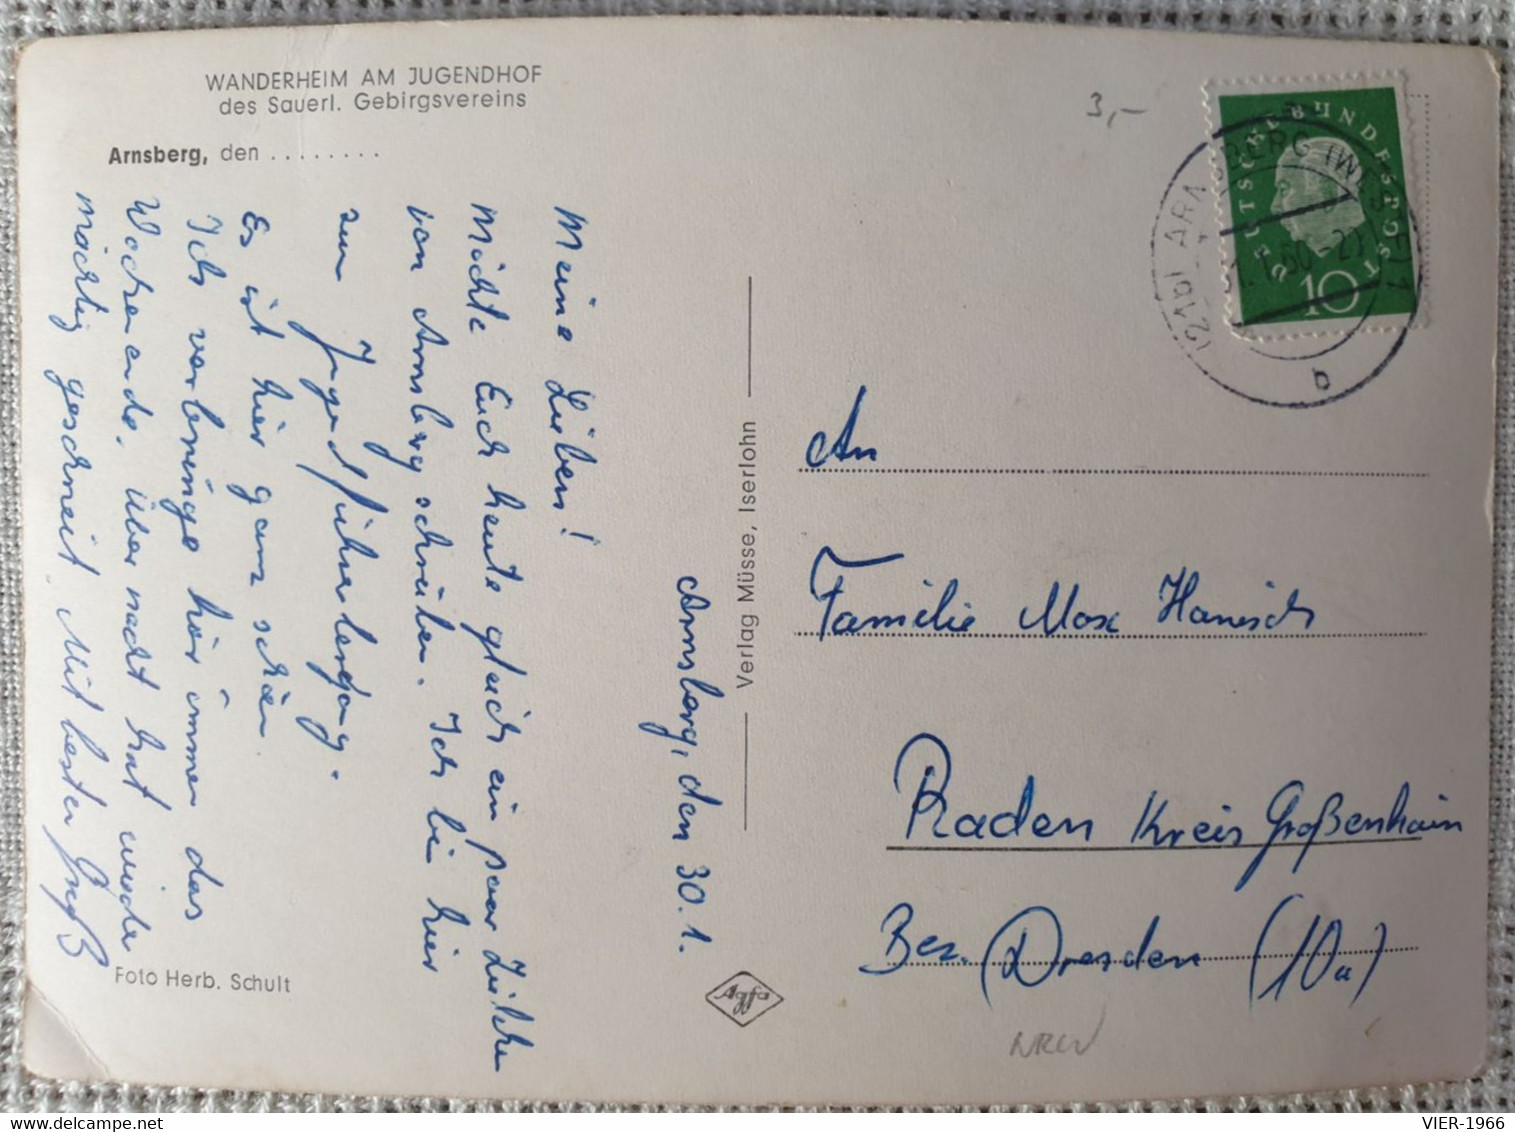 WANDERHEIM AM JUGENDHOF
des Sauerl. Gebirgsvereins
Arnsberg, den ........
Arnsberg, den 30.1.
Meine Lieben!
Möchte Euch heute gleich ein paar Zeilchen
von Arnsberg schreiben. Ich bin hier
zum Jugendführerlehrgang.
Es ist hier ganz schön
Ich verbringe hier immer das
Wochenende. Über nacht hat wieder
mächtig geschneit. Mit besten Gruß
Foto Herb. Schult
Verlag Müsse, Iserlohn
Agfa
3,-
DEUTSCHE BUNDESPOST
10
(21b) ARNSBERG (WESTF) 1
.1.60-20
b
An
Familie Max Hanisch
Raden Kreis Großenhain
Bez. Dresden (10a)
NRW
VIER-1966